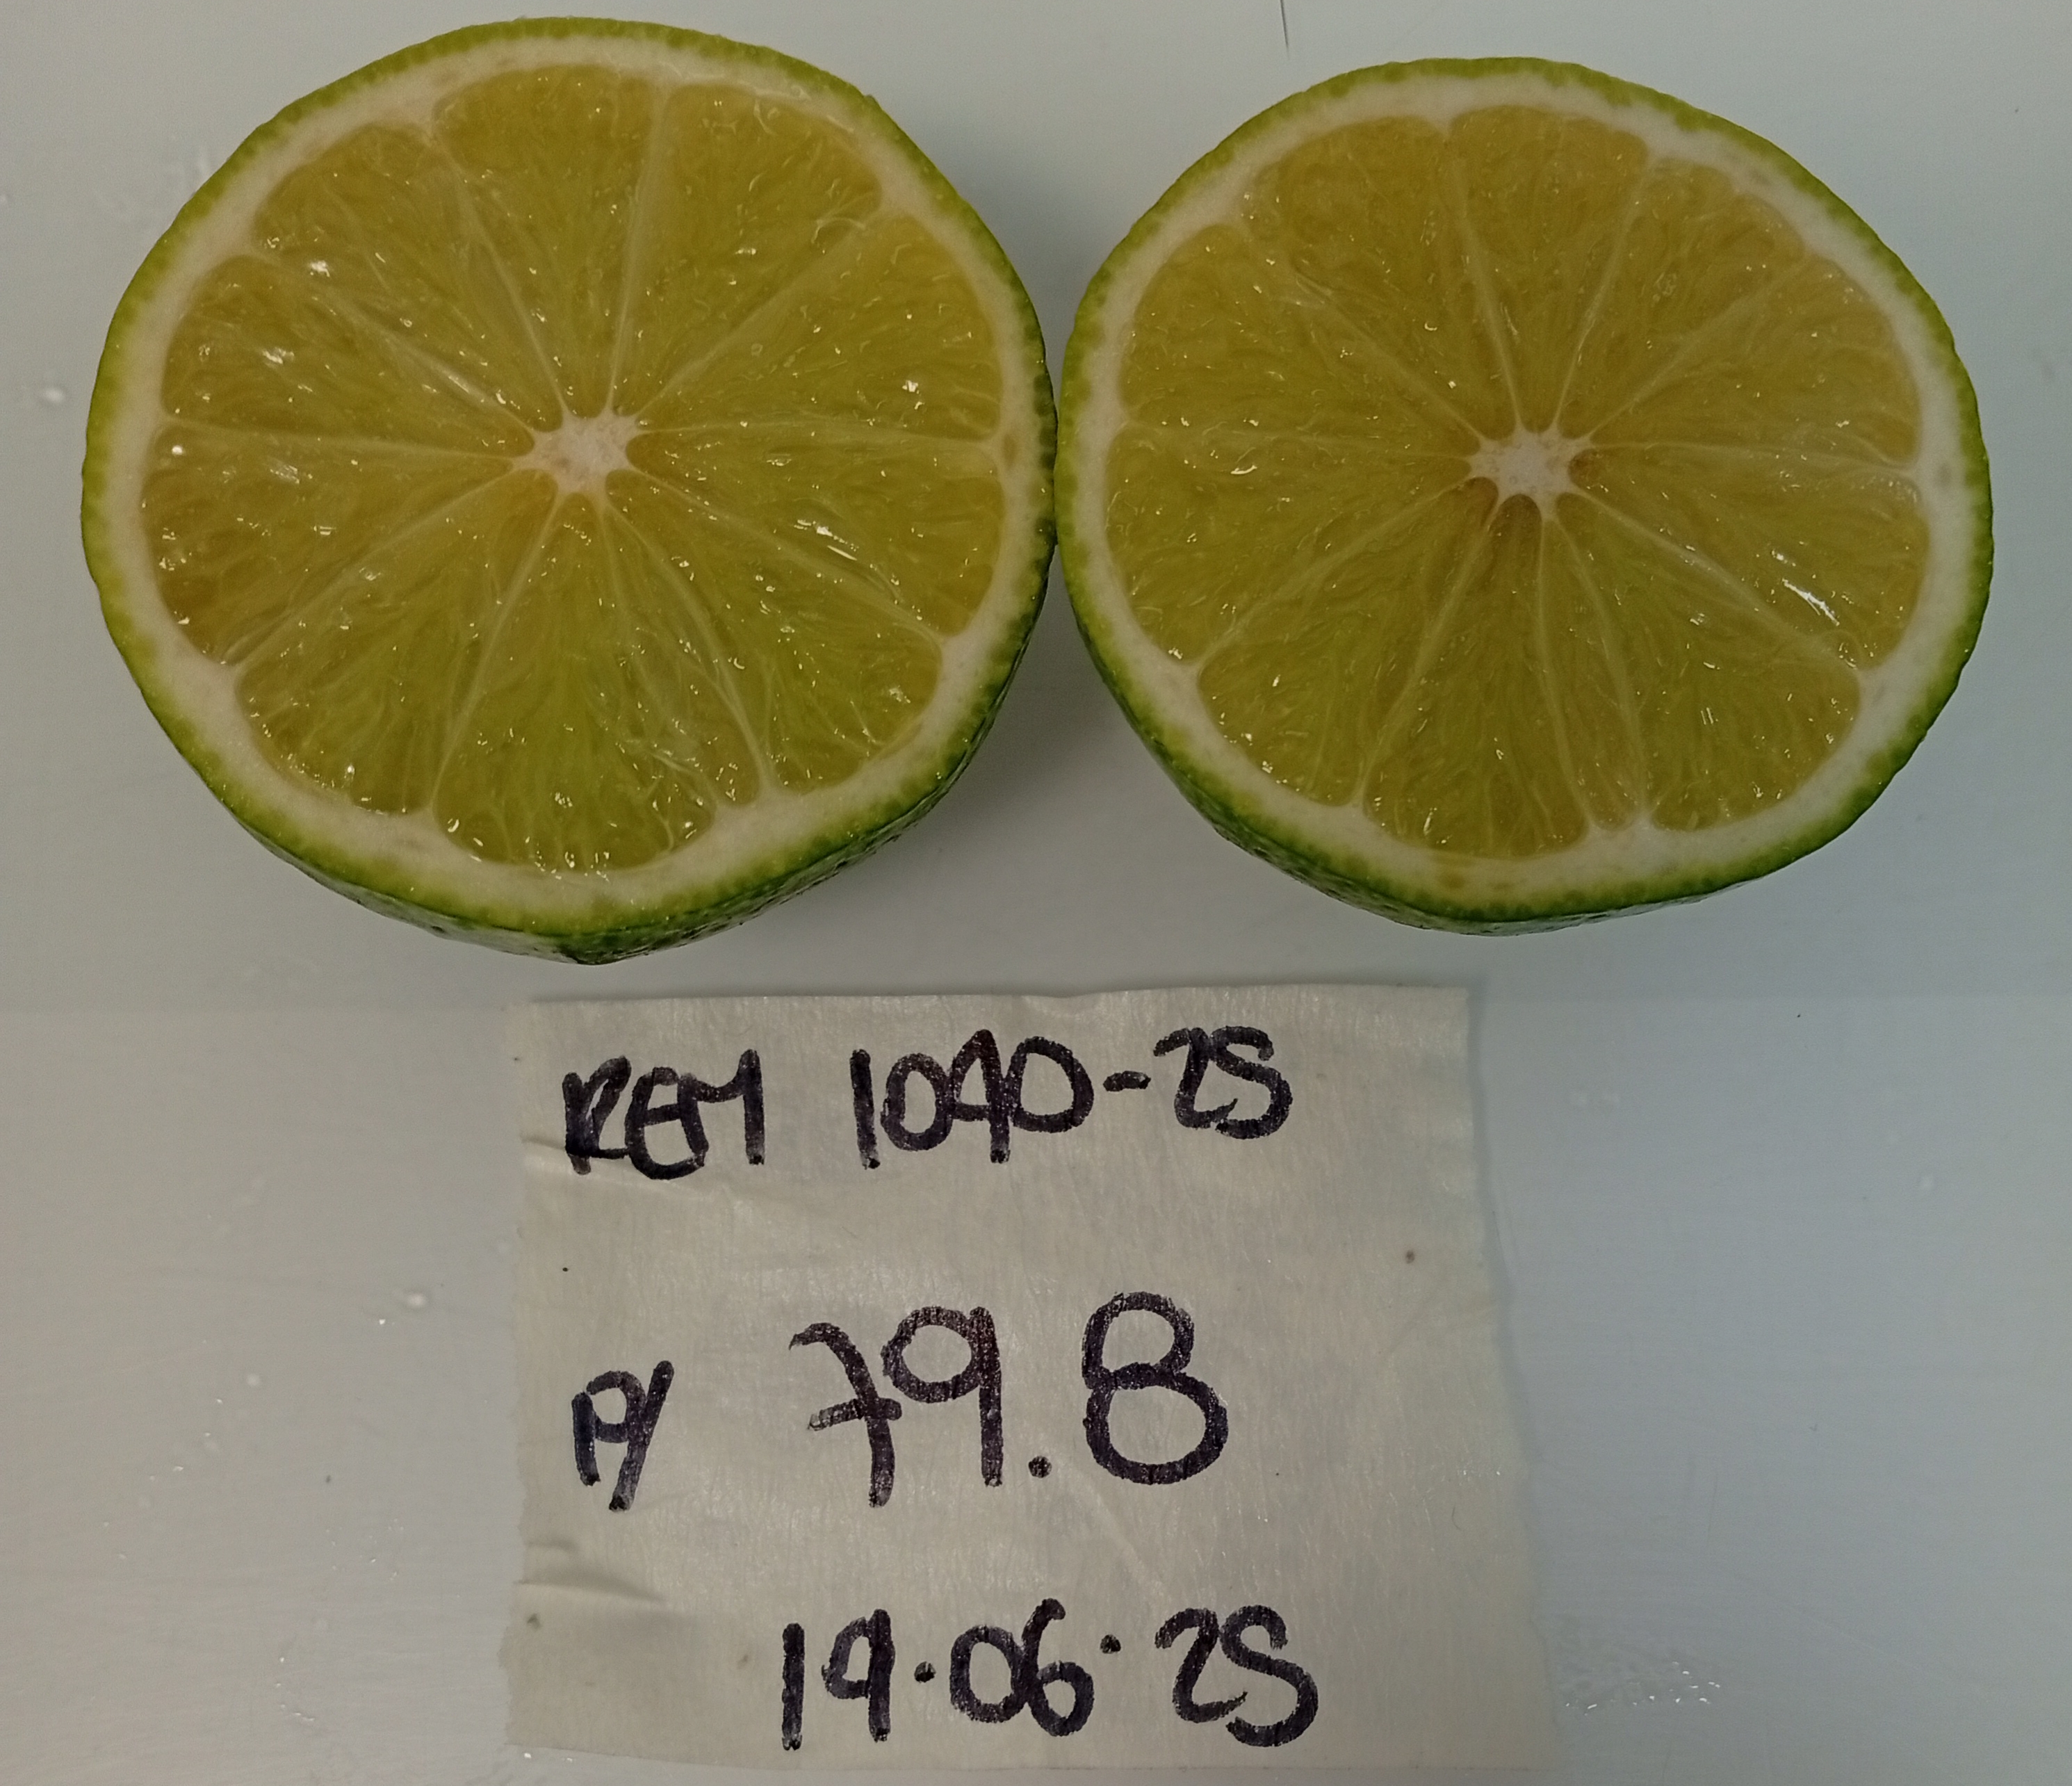 REM 1090-25
P/ 79.8
19.06.25